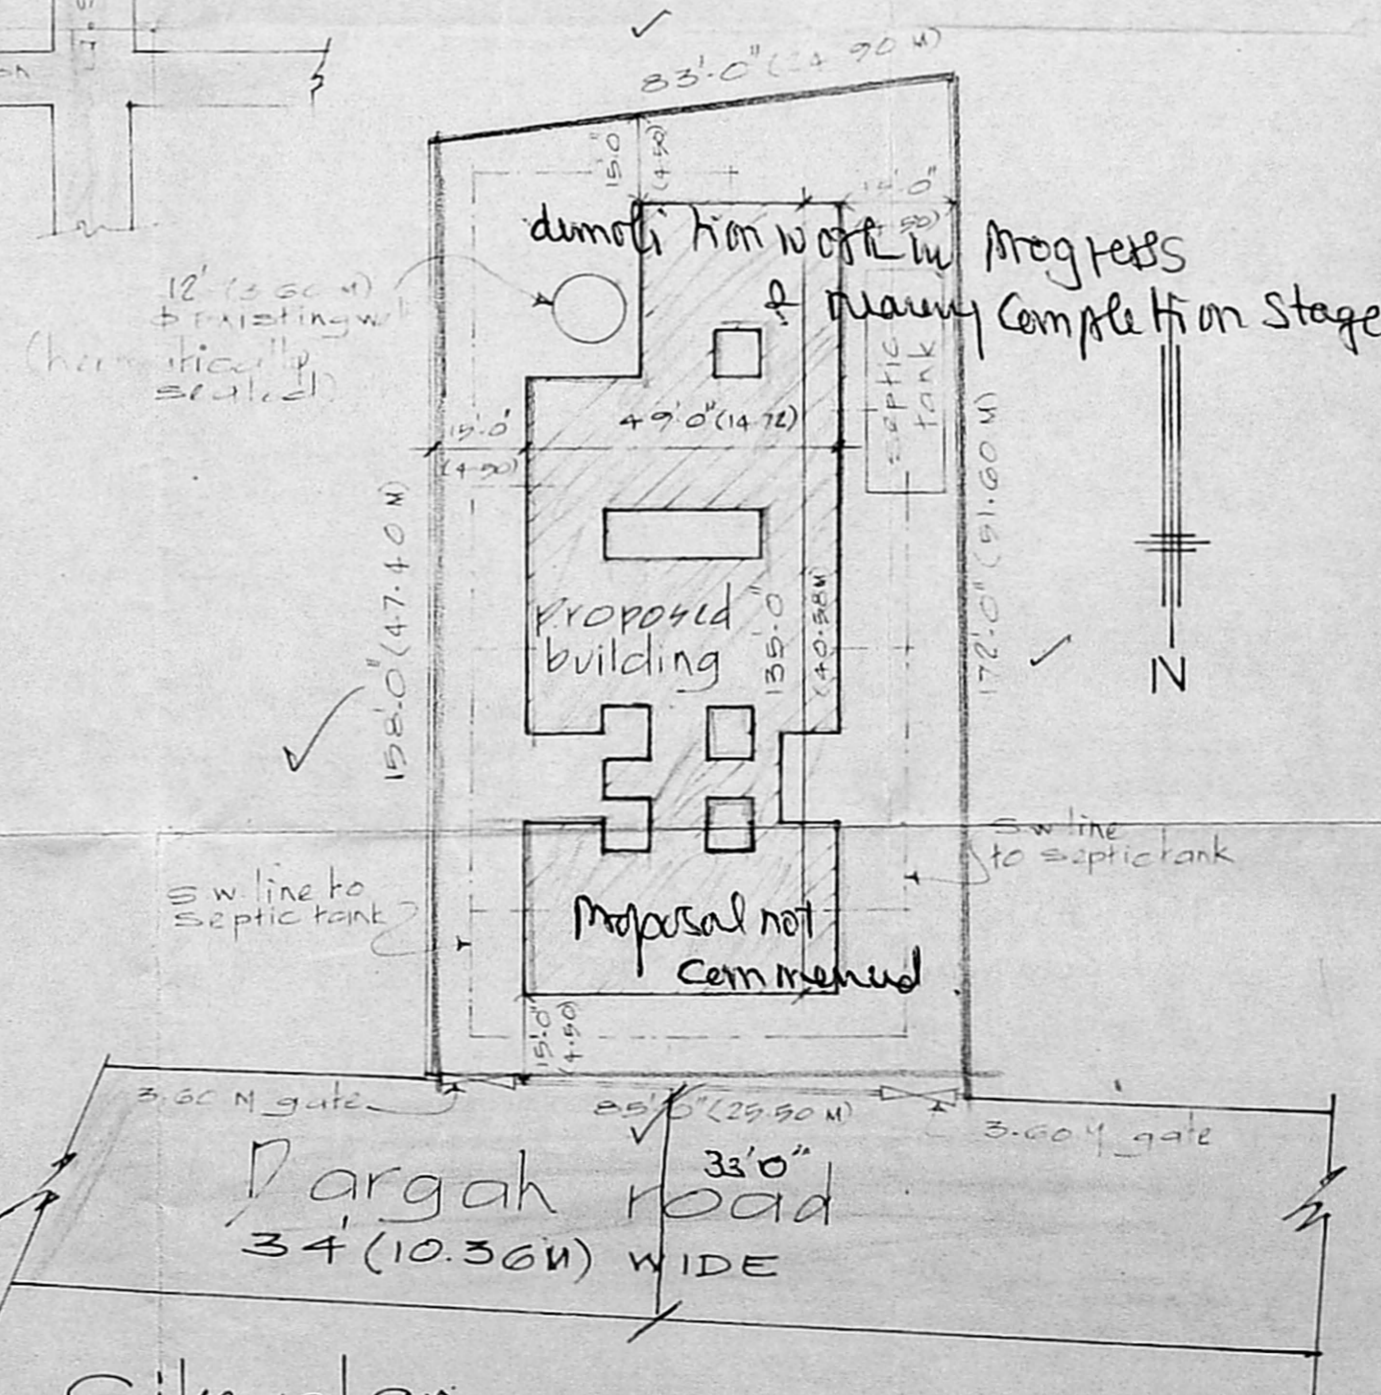 83'-0" (24.90 M)
15'-0"
(4.50)
15'-0"
50)
demolition work in progress
& nearing completion stage
12' (3.60 M)
existing
sealed)
septic
tank
15'-0"
(4.50)
49'-0" (14.72)
158'-0" (47.40 M)
172'-0" (51.60 M)
proposed
building
135'-0"
(40.58M)
N
S.W. line to
septic tank
S.W line
to septic tank
Proposal not
commenced
15'-0"
(4.50)
3.60 M gate
85'-0" (25.50 M)
3.60 M gate
33'0"
Dargah road
34' (10.36M) WIDE